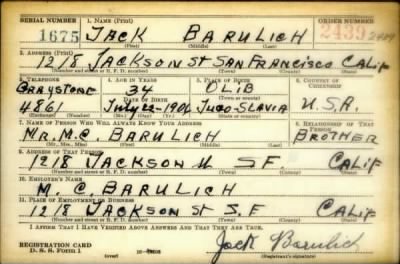 SERIAL NUMBER 1. NAME (Print) ORDER NUMBER
1675 JACK BARULICH 2439 2439
(First) (Middle) (Last)
2. ADDRESS (Print)
1218 JACKSON ST SAN FRANCISCO CALIF
(Number and street or R. F. D. number) (Town) (County) (State)
3. TELEPHONE 4. AGE IN YEARS 5. PLACE OF BIRTH 6. COUNTRY OF CITIZENSHIP
GRAYSTONE 34 OLIB
DATE OF BIRTH (Town or county)
4861 JULY-22-1906 JUGO-SLAVIA U.S.A.
(Exchange) (Number) (Mo.) (Day) (Yr.) (State or country)
7. NAME OF PERSON WHO WILL ALWAYS KNOW YOUR ADDRESS 8. RELATIONSHIP OF THAT PERSON
MR. M.C. BARULICH BROTHER
(Mr., Mrs., Miss) (First) (Middle) (Last)
9. ADDRESS OF THAT PERSON
1218 JACKSON S.F. CALIF
(Number and street or R. F. D. number) (Town) (County) (State)
10. EMPLOYER'S NAME
M. C. BARULICH
11. PLACE OF EMPLOYMENT OR BUSINESS
1218 JACKSON ST S.F CALIF
(Number and street or R. F. D. number) (Town) (County) (State)
I AFFIRM THAT I HAVE VERIFIED ABOVE ANSWERS AND THAT THEY ARE TRUE.
REGISTRATION CARD
D. S. S. Form 1 (over) Jack Barulich
(Registrant's signature)